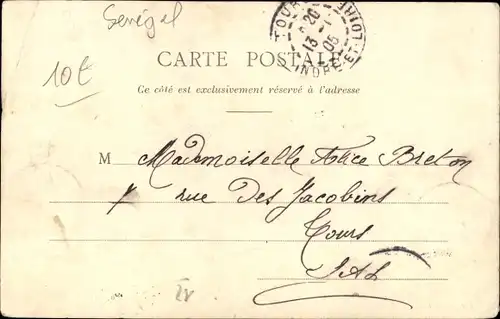 Sénégal
10€
TOURS
INDRE-ET-LOIRE
13-1
05
CARTE POSTALE
Ce côté est exclusivement réservé à l'adresse
M Mademoiselle Alice Breton
rue Des Jacobins
Tours
I & L